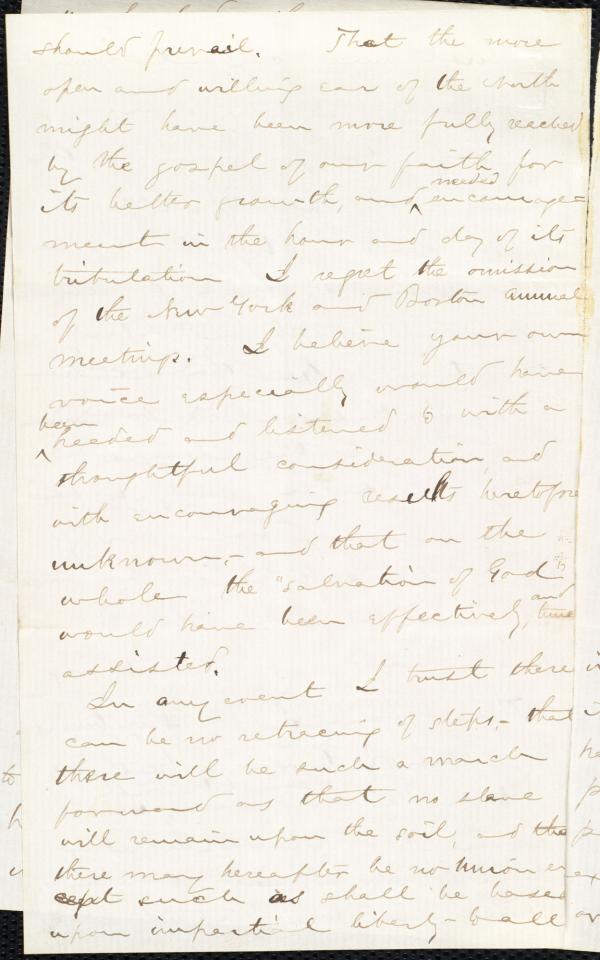 should prevail. That the more
open and willing ear of the North
might have been more fully reached
by the gospel of our faith for
its better growth, and needed encourage=
ment in the hour and day of its
tribulation I regret the omission
of the New York and Boston annual
meetings. I believe your own
voice especially would have
been heeded and listened to with a
thoughtful consideration, and
with encouraging results heretofore
unknown, - and that on the
whole the "salvation of God"
would have been effectively, and
assisted.
In any event I trust there
can be no retracing of steps, - that
there will be such a march
forward as that no slave
will remain upon the soil, and the
there may hereafter be no Union ex
cept such as shall be based
upon impartial liberty - to all